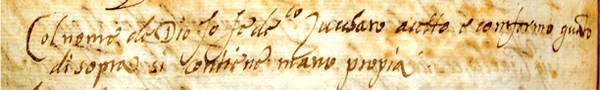 Col nome de Dio Io fede.co Zuccharo acetto e confermo quãto
di sopra si contiene mano propia